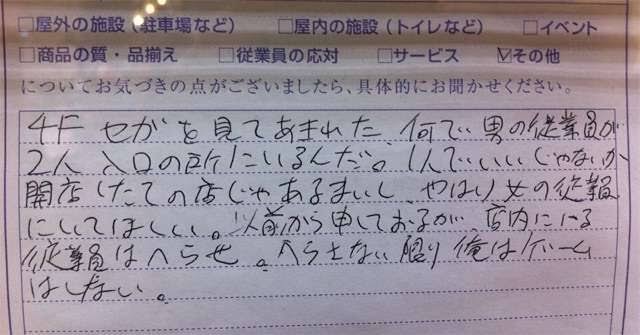 □屋外の施設（駐車場など） □屋内の施設（トイレなど） □イベント
□商品の質・品揃え □従業員の応対 □サービス ☑その他
についてお気づきの点がございましたら、具体的にお聞かせください。
4F セガを見てあきれた、何で男の従業員が
2人入口の所にいるんだ。1人でいいじゃないか
開店したての店じゃあるまいし、やはり女の従業員
にしてほしい。以前から申しておるが、店内にいる
従業員はへらせ。へらさない限り俺はゲーム
はしない。